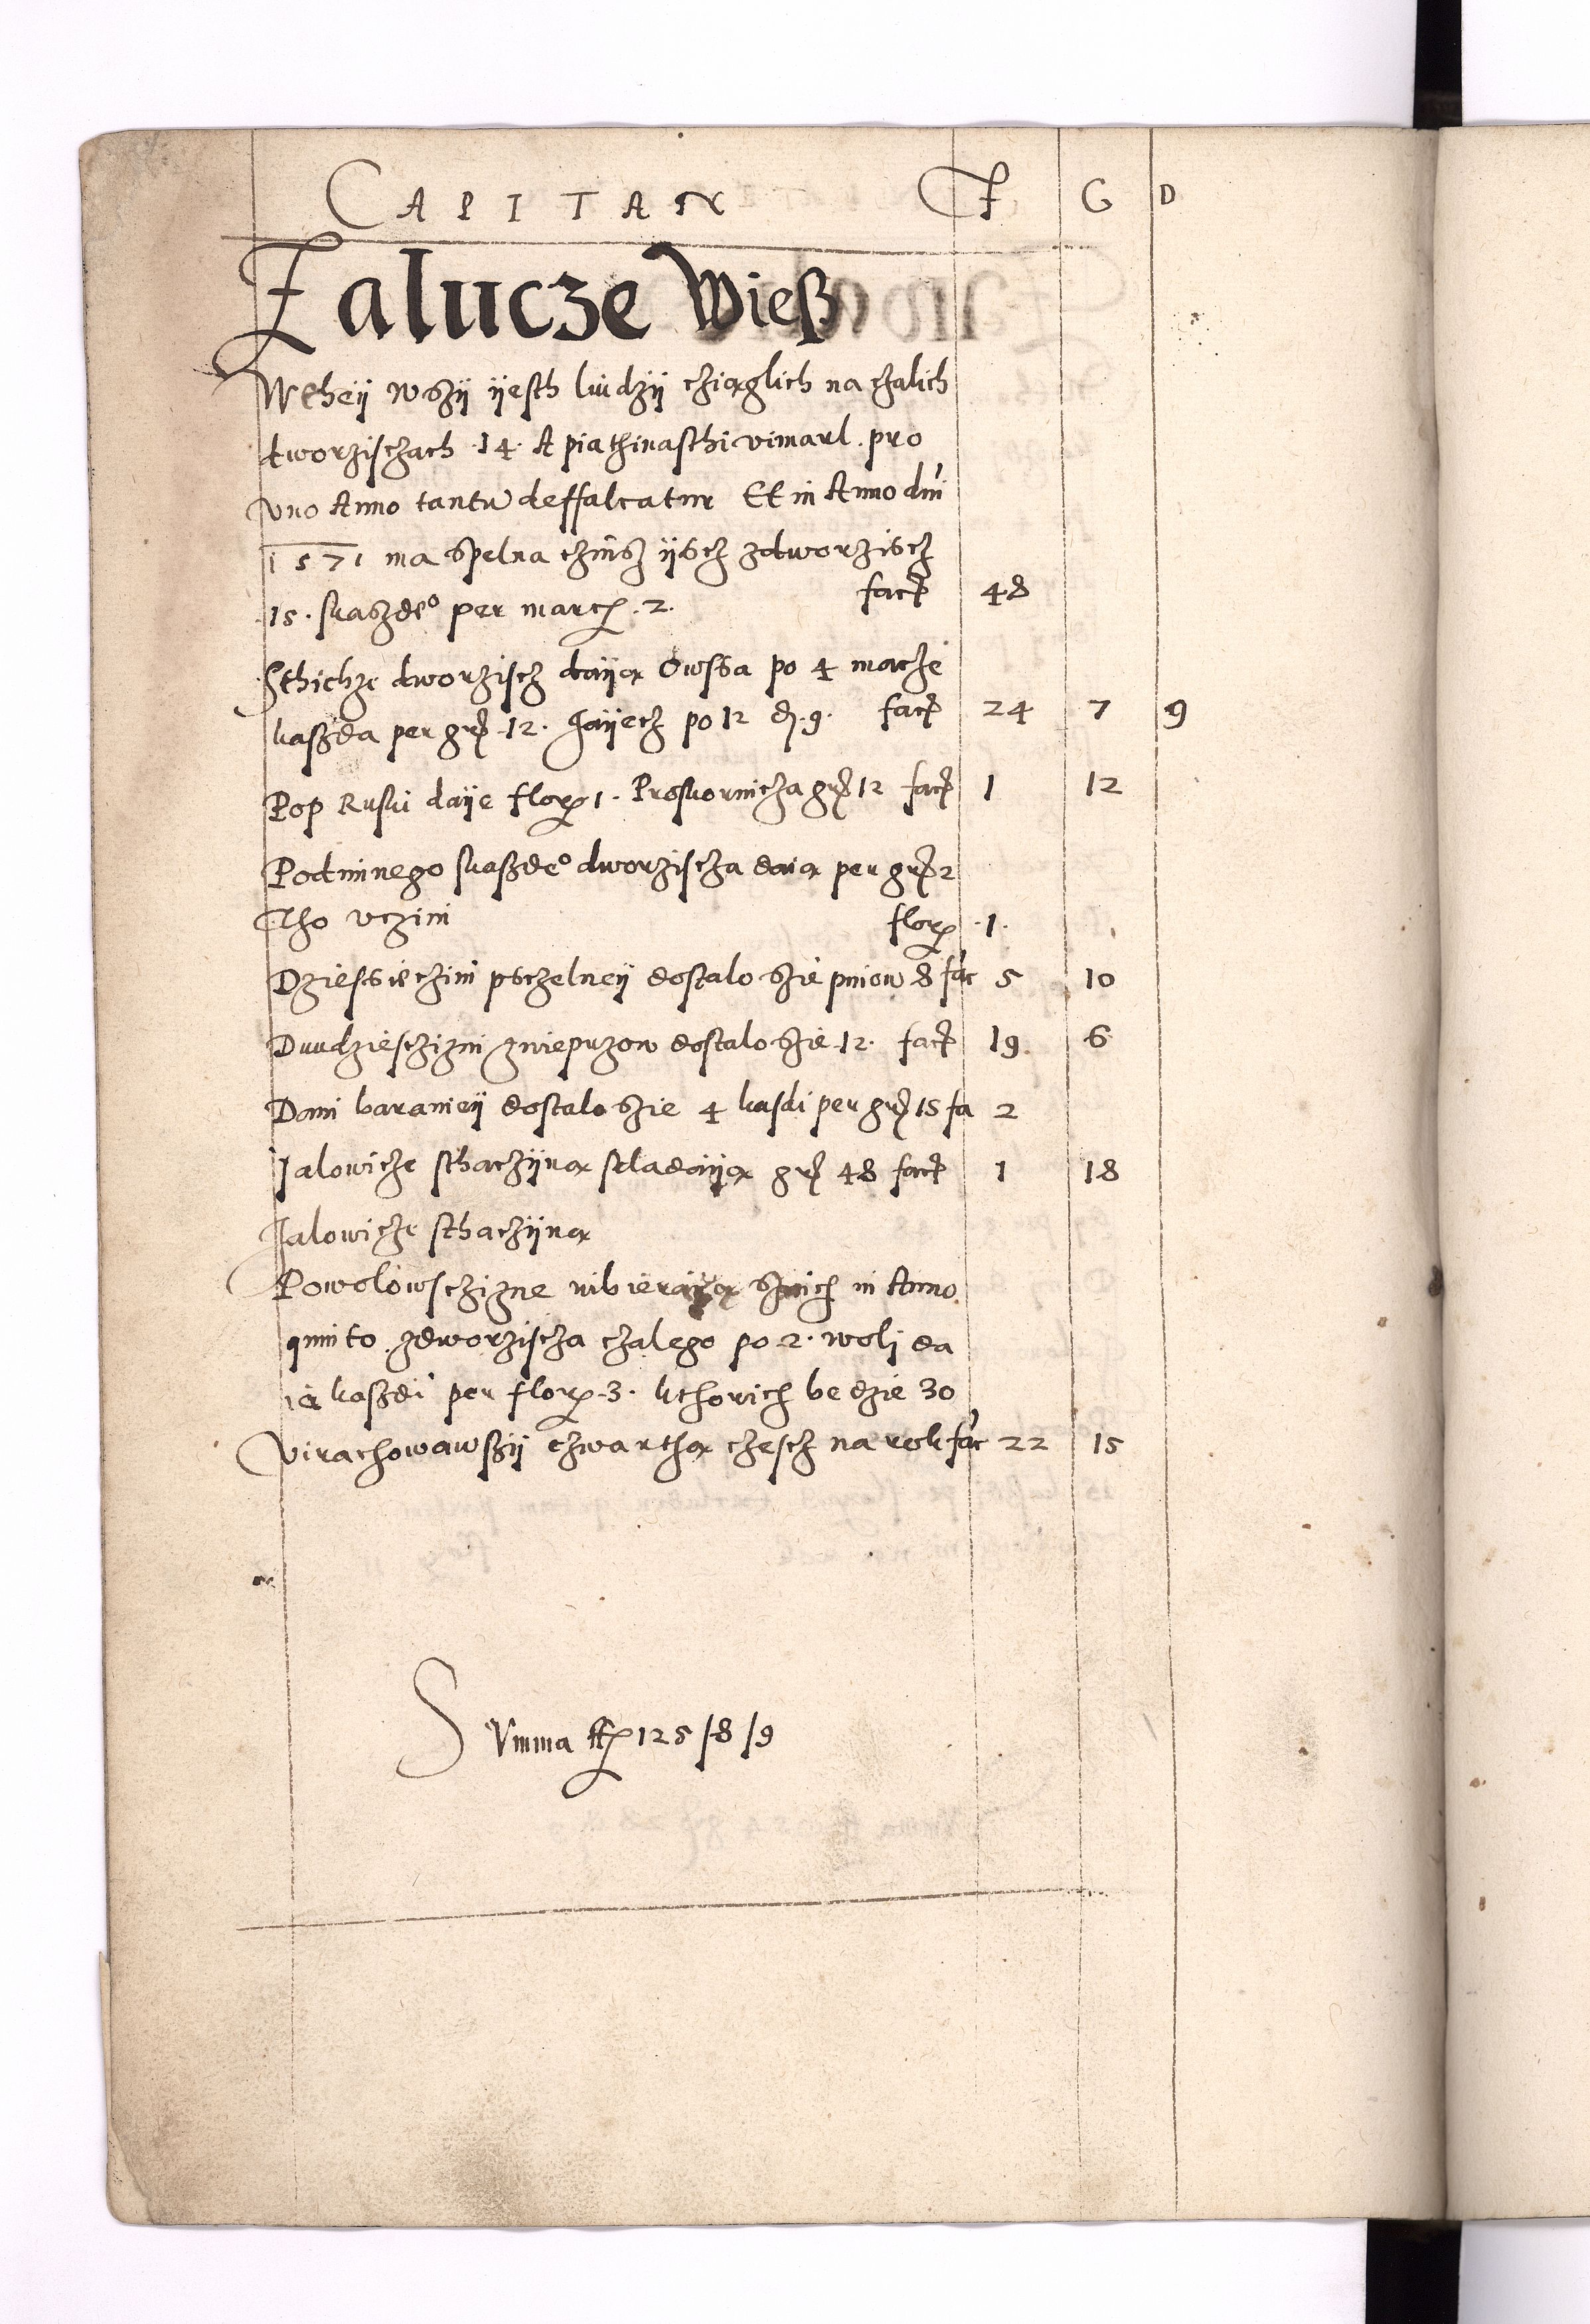 CAPITAN F G D
Zalucze Wieß
Wthey wszÿ ÿesth ludzÿ cziąglich na czalich
dworzisczach ·14· A piathinasthi vimarl. pro
vno Anno tantu deffalcatur Et in Anno dni
1571 ma spelna czinsz ÿscz zdworziscz
·15· skaszde° per marcz. 2. facit 48
Sthichze dworziscz daÿą Owssa po 4 macze
kaszda per grz 12. Jaÿecz po 12 d. 9. facit 24 7 9
Pop Ruski daÿe florz 1. Proskurnicza grz 12 facit 1 12
Podimnego skaszde° dworziscza daią per grz 2
Tho vczini florz ·1·
Dziessieczini psczelneÿ dostalo szie pniow 8 fac 5 10
Dwudziesczizni zwieprzow dostalo szie 12. facit 19 6
Dani baranieÿ dostalo szie 4 kasdi per grz 15 fa 2
Jalowicze sthaczÿną skladaÿą grz 48 facit 1 18
Jalowicze sthaczÿną
Powolowsczizne vibieraÿą sznich in Anno
quinto zdworziscza czalego po 2. woli da
ią kaszdi per florz 3. kthorich bedzie 30
virachowawszÿ czwarthą czescz na rok fac 22 15
SVmma ff 125 /8 /9